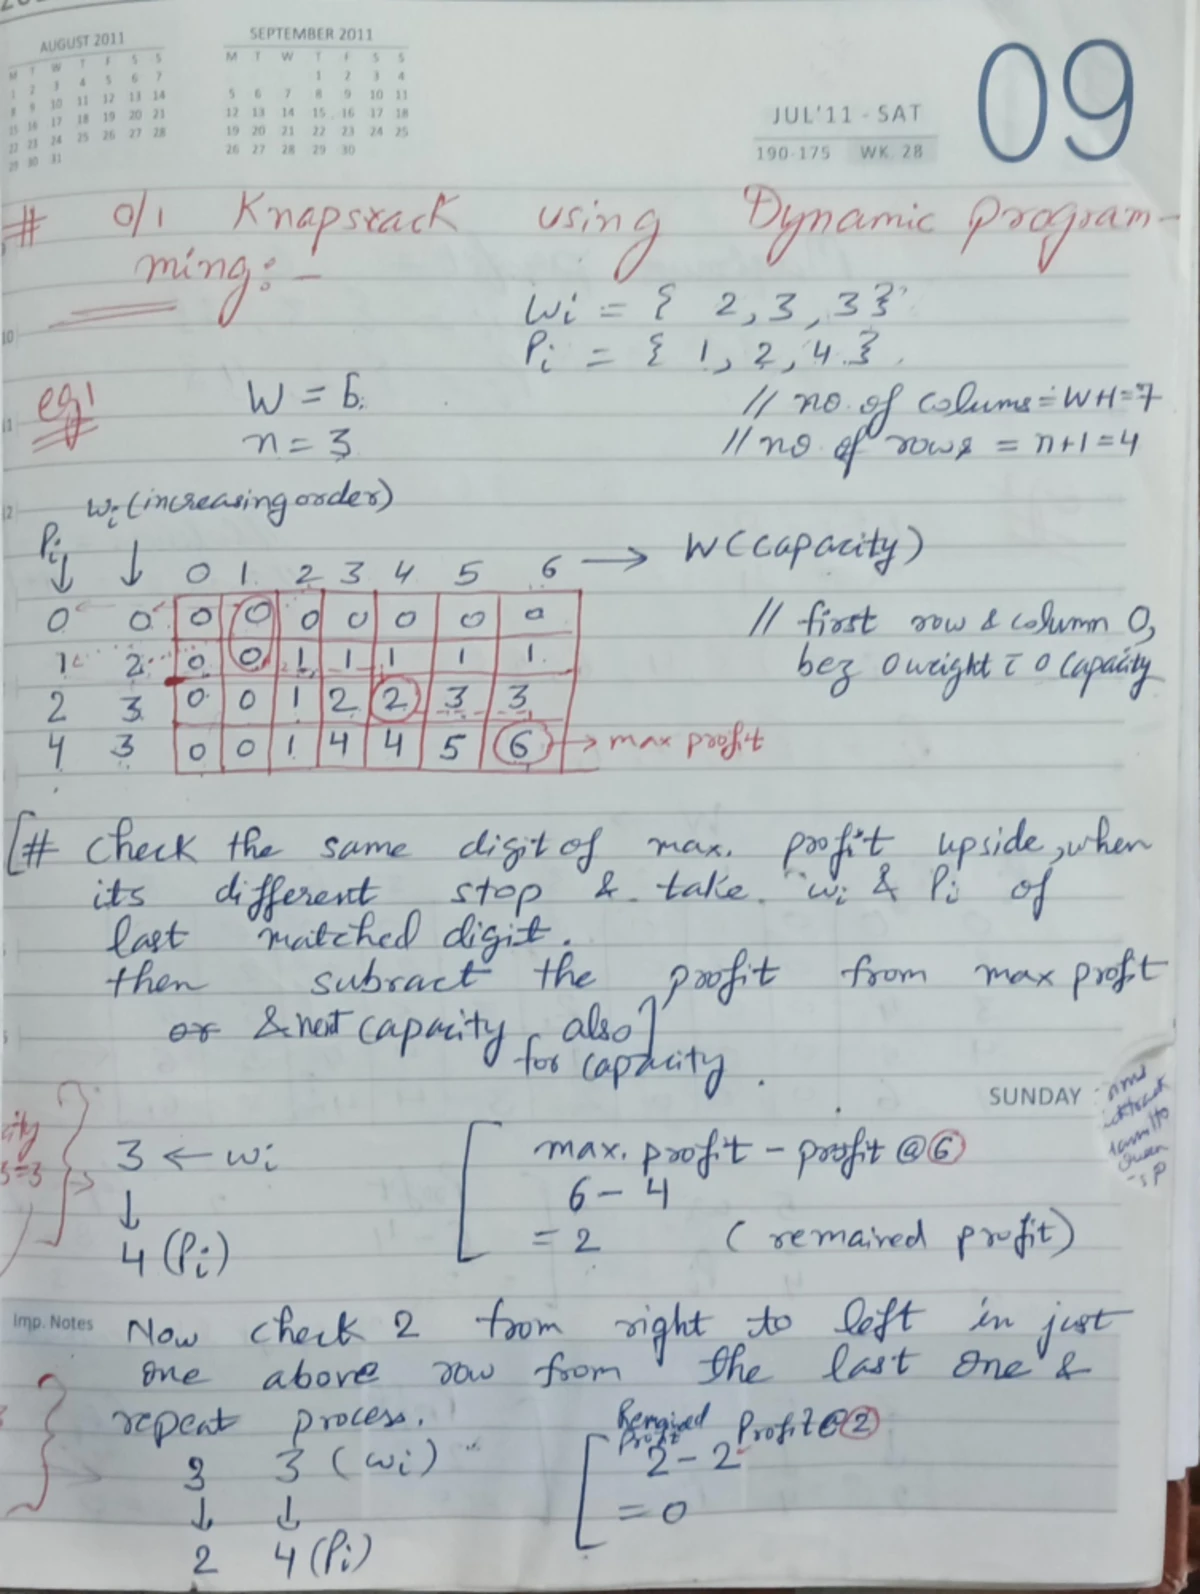 AUGUST 2011
M T W T F S S
1 2 3 4 5 6 7
8 9 10 11 12 13 14
15 16 17 18 19 20 21
22 23 24 25 26 27 28
29 30 31
SEPTEMBER 2011
M T W T F S S
1 2 3 4
5 6 7 8 9 10 11
12 13 14 15 16 17 18
19 20 21 22 23 24 25
26 27 28 29 30
JUL'11 - SAT
190-175 WK 28
09
# 0/1 Knapsack using Dynamic Program-
ming:-
Wi = { 2, 3, 3 }
Pi = { 1, 2, 4 }
eg1
W = 6
n = 3
// no. of colums = W+1=7
// no of rows = n+1=4
wi (increasing order)
Pi
0 1 2 3 4 5 6 → W (capacity)
0 0 0 0 0 0 0 0 0
1 2 0 0 1 1 1 1 1
2 3 0 0 1 2 2 3 3
4 3 0 0 1 4 4 5 6 → max profit
// first row & column 0,
bcz 0 weight = 0 capacity
[# check the same digit of max. profit upside, when
its different stop & take wi & Pi of
last matched digit.
then subract the profit from max profit
or & next capacity also]
for capacity.
SUNDAY
3 ← wi
↓
4 (Pi)
[ max. profit - profit @ 6
6 - 4
= 2 (remained profit)
Imp. Notes
Now check 2 from right to left in just
one above row from the last one &
repeat process.
3 3 (wi)
↓ ↓
2 4 (Pi)
[ Remained Profit Profit @ 2
2 - 2
= 0